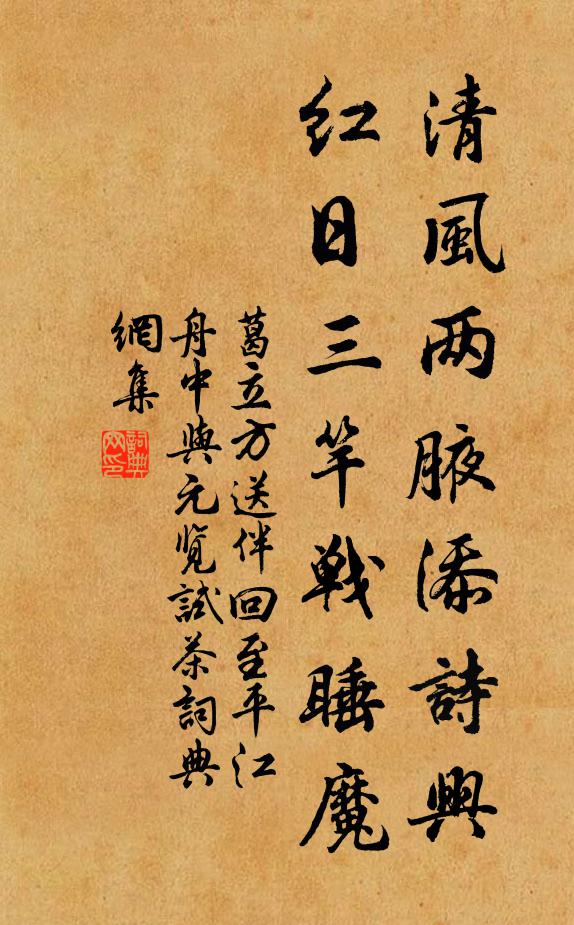 清風两腋添詩興
紅日三竿戰睡魔
葛立方送伴回至平江
舟中與元览試茶詞典
網集
詞典
网印